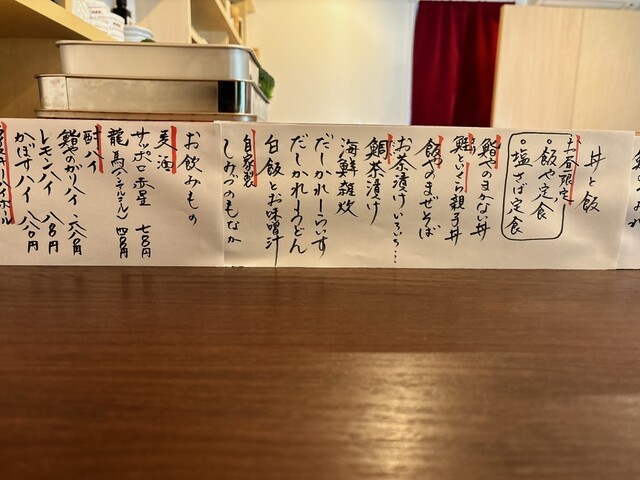 丼と飯
・飯や定食
・塩さば定食
鮨やのまかない丼
鮭といくら親子丼
飯やのまぜそば
お茶漬けいろいろ…
鯛茶漬け
海鮮雑炊
だしかれーらいす
だしかれーうどん
白飯とお味噌汁
自家製
しみづのもなか
お飲みもの
麦酒
サッポロ赤星 七八〇円
龍馬(ノンアルコール) 四八〇円
酎ハイ
鮨やのがりハイ 六八〇円
レモンハイ 八八〇円
かぼすハイ 八八〇円